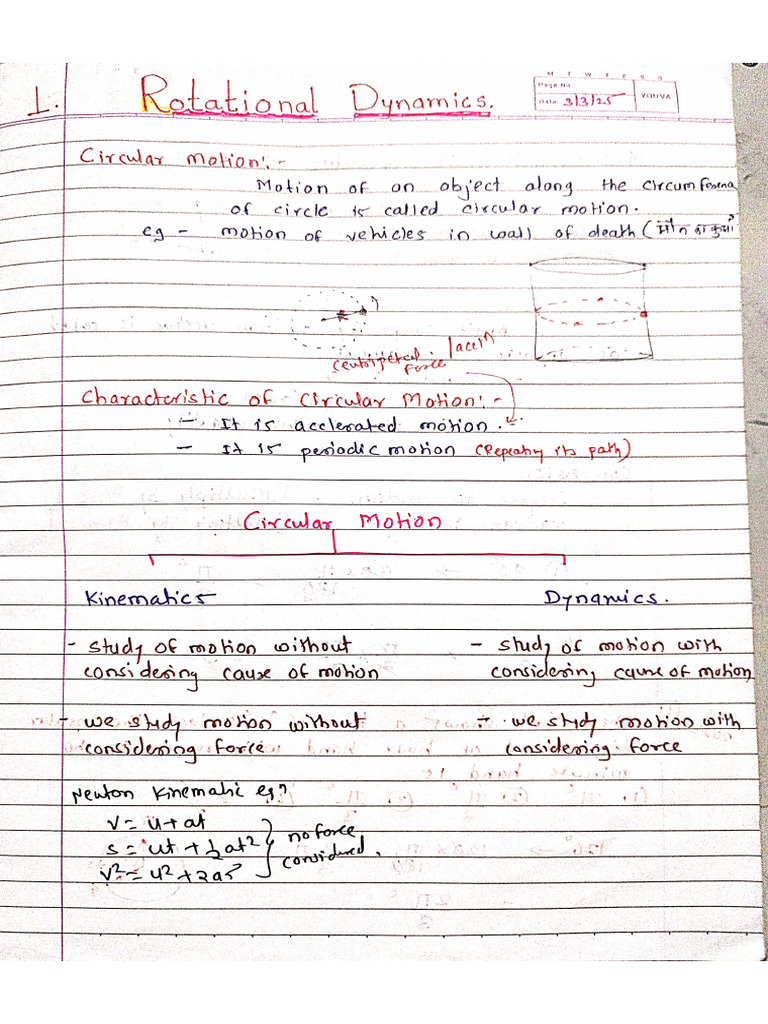 M T W T F S S
Page No.:
Date: 3/3/25
YOUVA
1. Rotational Dynamics.
Circular motion:-
Motion of an object along the circumference
of circle is called circular motion.
eg - motion of vehicles in wall of death (मौत का कुआँ
centripetal force /accln
Characteristic of Circular Motion:-
- It is accelerated motion.
- It is periodic motion (Repeating its path)
Circular Motion
Kinematics
Dynamics.
- study of motion without
considering cause of motion
- study of motion with
considering cause of motion
- we study motion without
considering force
- we study motion with
considering force
Newton Kinematic eqn
v = u + at
s = ut + ½at²
v² = u² + 2as
no force
considred.